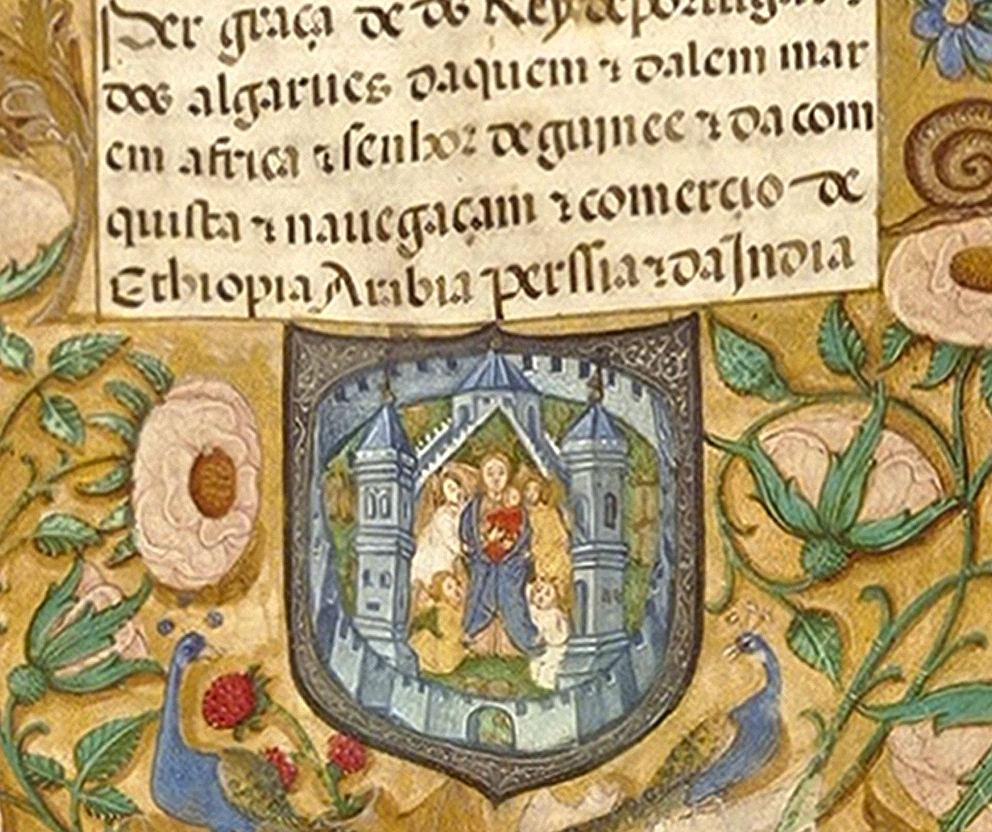 Per graça de ds Rey de portugal ⁊
dos algarues daquem ⁊ dalem mar
em africa ⁊ senhor de guinee ⁊ da com
quista ⁊ nauegaçam ⁊ comercio de
Ethiopia Arabia perssia ⁊ da India